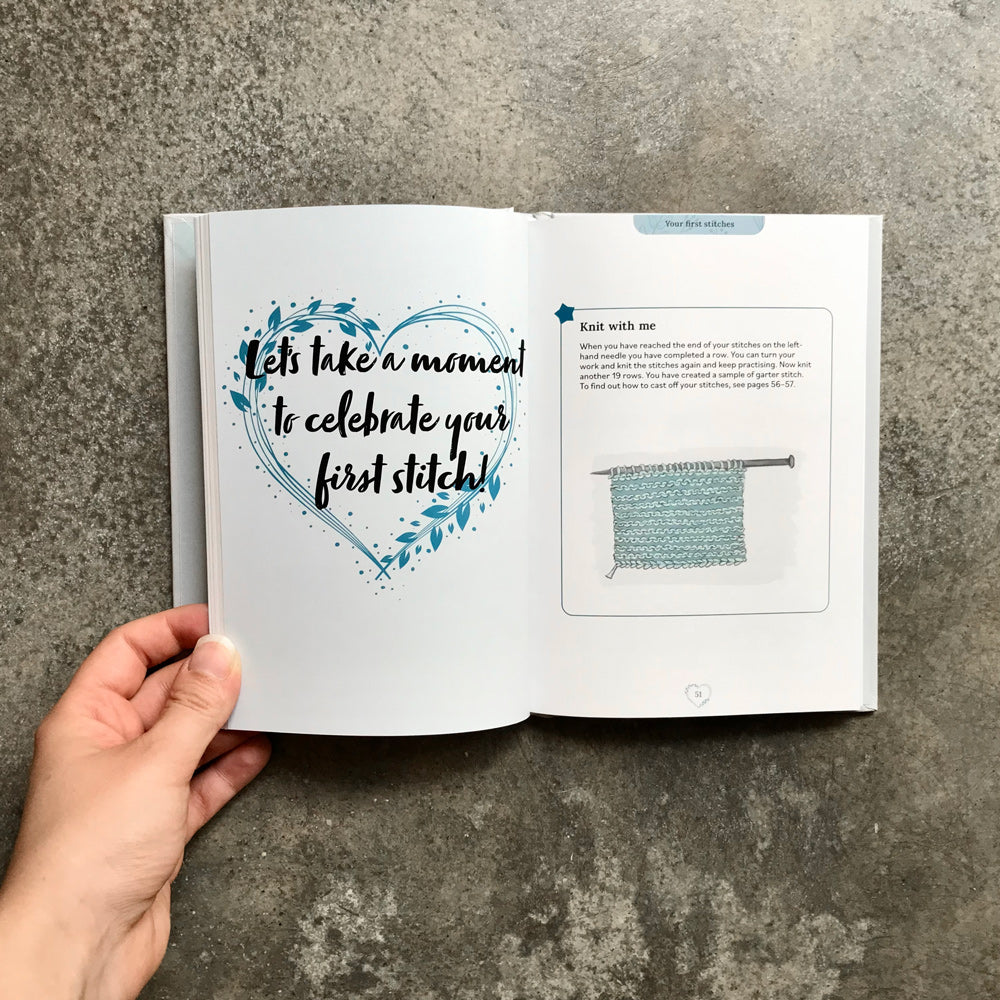 Let's take a moment
to celebrate your
first stitch!
Your first stitches
Knit with me
When you have reached the end of your stitches on the left-
hand needle you have completed a row. You can turn your
work and knit the stitches again and keep practising. Now knit
another 19 rows. You have created a sample of garter stitch.
To find out how to cast off your stitches, see pages 56–57.
51